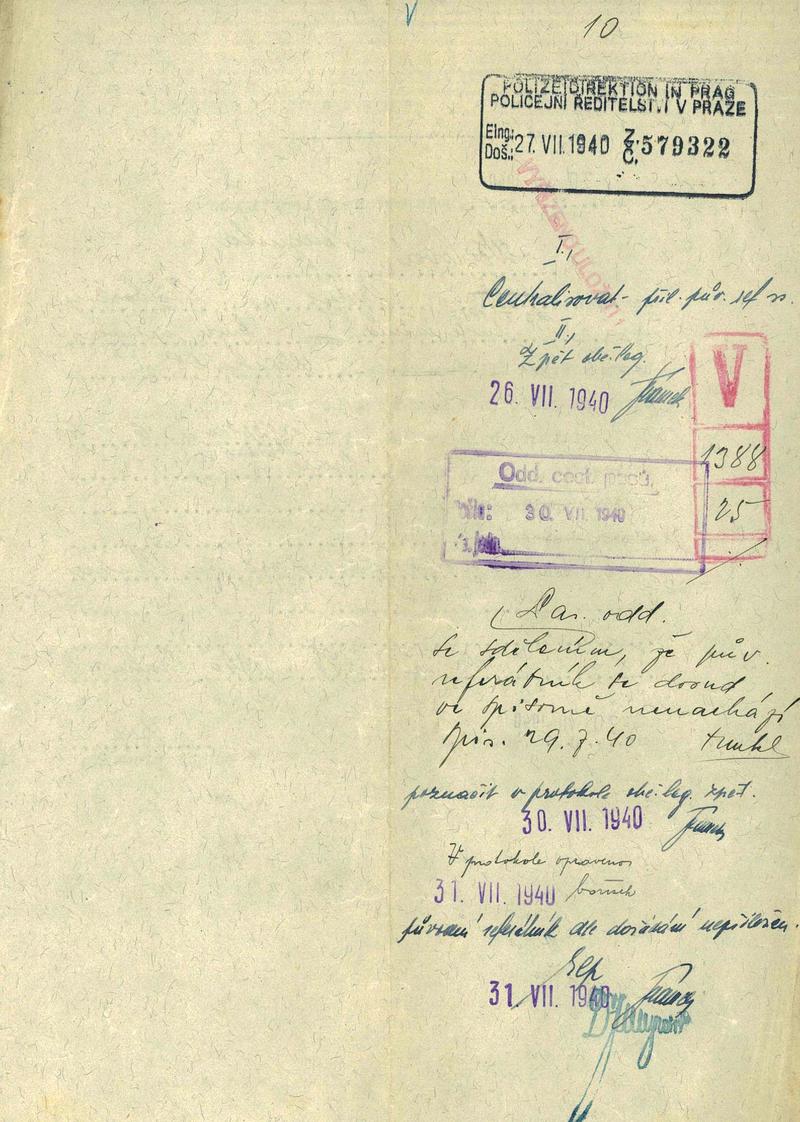 V
10
POLIZEIDIREKTION IN PRAG
POLICEJNÍ ŘEDITELSTVÍ V PRAZE
Eing.: 27. VII. 1940 Z. 579322
Doš.: Č.
I.,
Centralisovat - příl. pův. ref
II.,
Zpět obč. leg.
26. VII. 1940
V
1388
25
Odd. cest. pasů.
30. VII. 1940
Pas. odd.
se sdělením, že pův.
referátník se dosud
ve spisovně nenachází
Spis. 29.7.40
poznačit v protokole obč. leg. zpět.
30. VII. 1940
V protokole opraveno
31. VII. 1940
původní referátník dle doznání nepřiložen.
31. VII. 1940